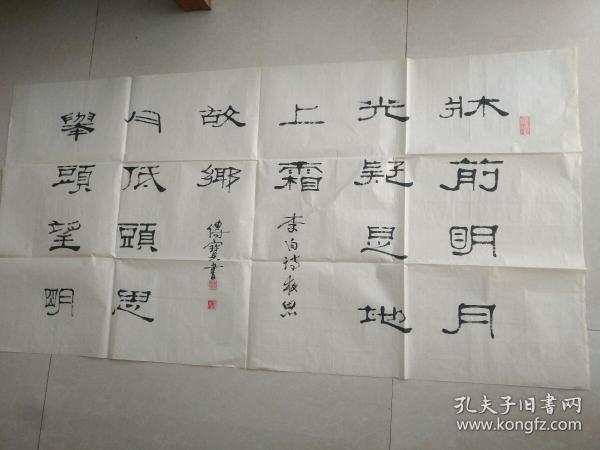 牀前明月
光疑是地
上霜
舉頭望明
月低頭思
故鄉
李白诗夜思
傅寶書
孔夫子旧書网
www.kongfz.com